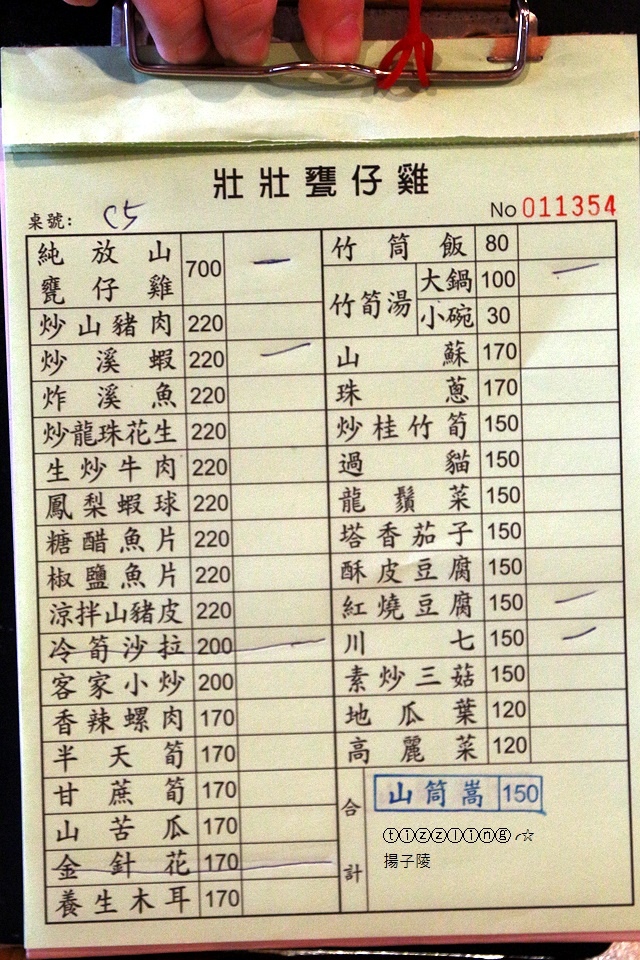 壯壯甕仔雞
桌號: C5
No 011354
純放山甕仔雞 700 一
炒山豬肉 220
炒溪蝦 220 一
炸溪魚 220
炒龍珠花生 220
生炒牛肉 220
鳳梨蝦球 220
糖醋魚片 220
椒鹽魚片 220
涼拌山豬皮 220
冷筍沙拉 200
客家小炒 200
香辣螺肉 170
半天筍 170
甘蔗筍 170
山苦瓜 170
金針花 170
養生木耳 170
竹筒飯 80
竹筍湯 大鍋 100 一
小碗 30
山蘇 170
珠蔥 170
炒桂竹筍 150
過貓 150
龍鬚菜 150
塔香茄子 150
酥皮豆腐 150
紅燒豆腐 150 一
川七 150 一
素炒三菇 150
地瓜葉 120
高麗菜 120
合計
山筒嵩 150
tizzling
揚子陵